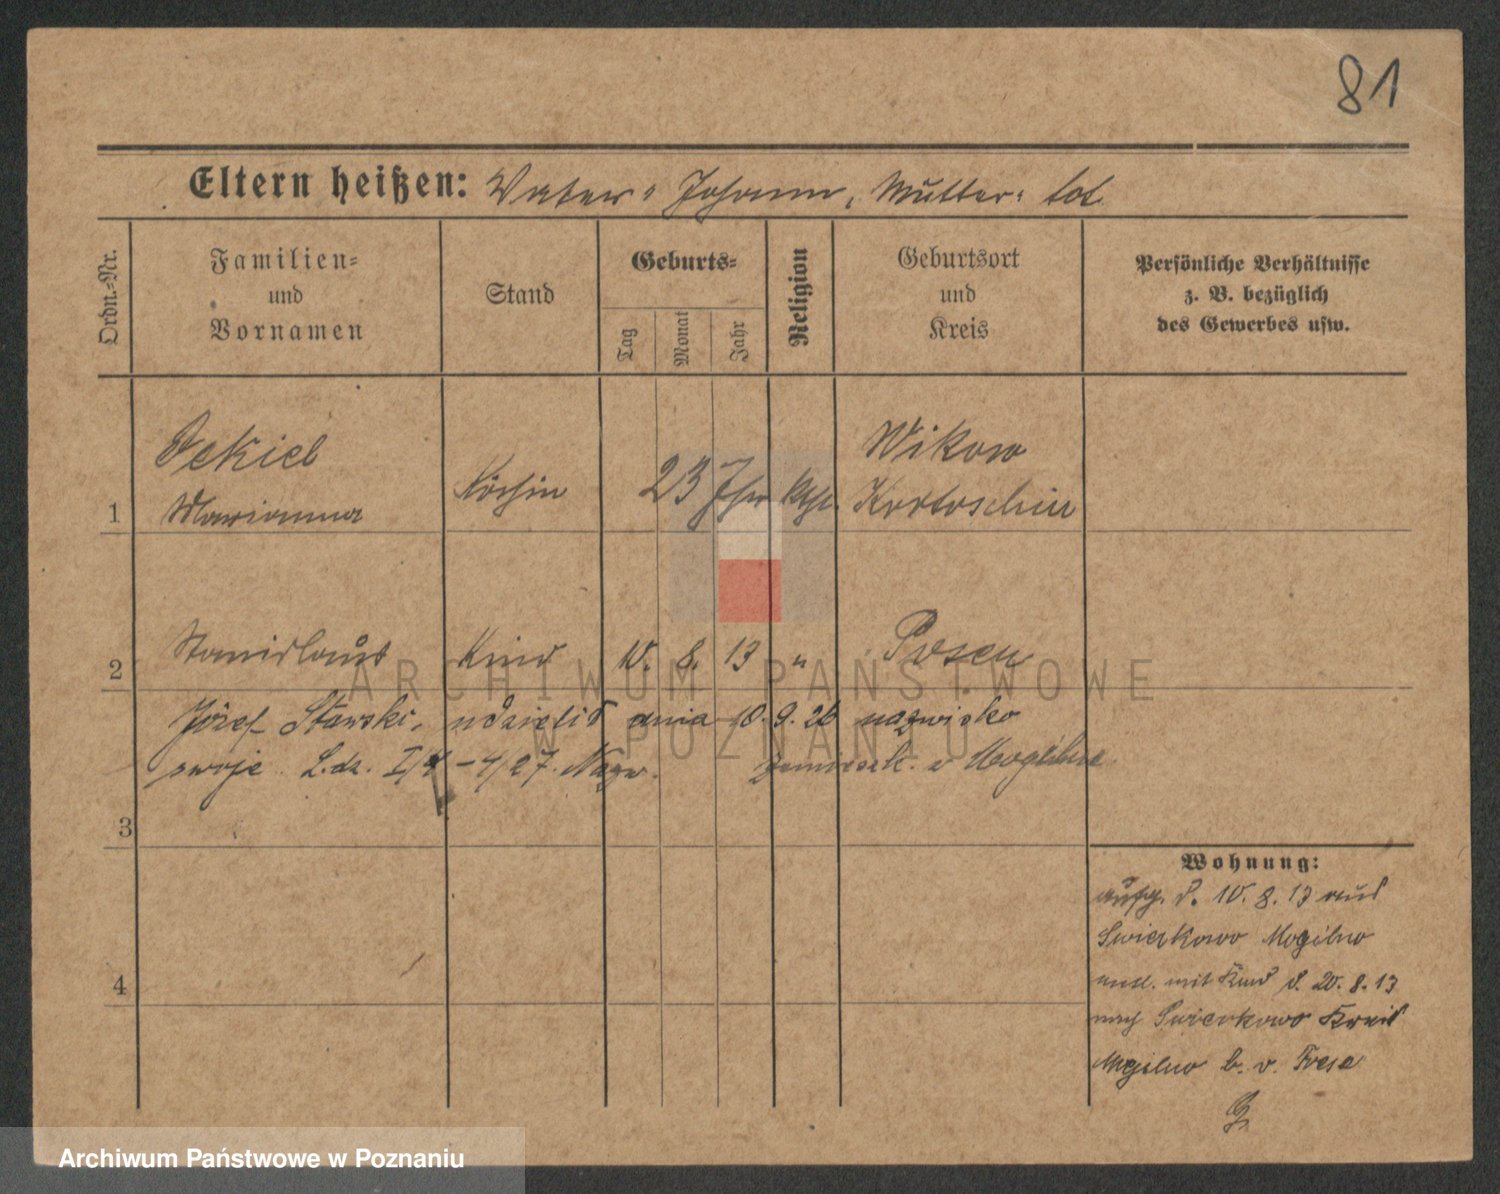 81
Eltern heißen: Vater: Johann, Mutter: tot
Ordn.-Nr.
Familien- und Vornamen
Stand
Geburts-
Tag
Monat
Jahr
Religion
Geburtsort und Kreis
Persönliche Verhältnisse z. B. bezüglich des Gewerbes usw.
Marianna
1
Köchin
23 Jhr
kth.
Wikow
Krotoschin
2
Stanislaus
Kind
10. 8. 13
"
Posen
Józef Stawski, udzielił dnia 10.9.26 nazwisko
swoje L.dz. I/4 - 4/27. Nazw. zamieszk. w Mogilnie
3
4
Wohnung:
aufg. d. 10. 8. 13 aus
Swierkowo Mogilno
mit Kind d. 20. 8. 13
nach Swierkowo Kreis
Mogilno b. v.
ARCHIWUM PAŃSTWOWE
W POZNANIU
Archiwum Państwowe w Poznaniu